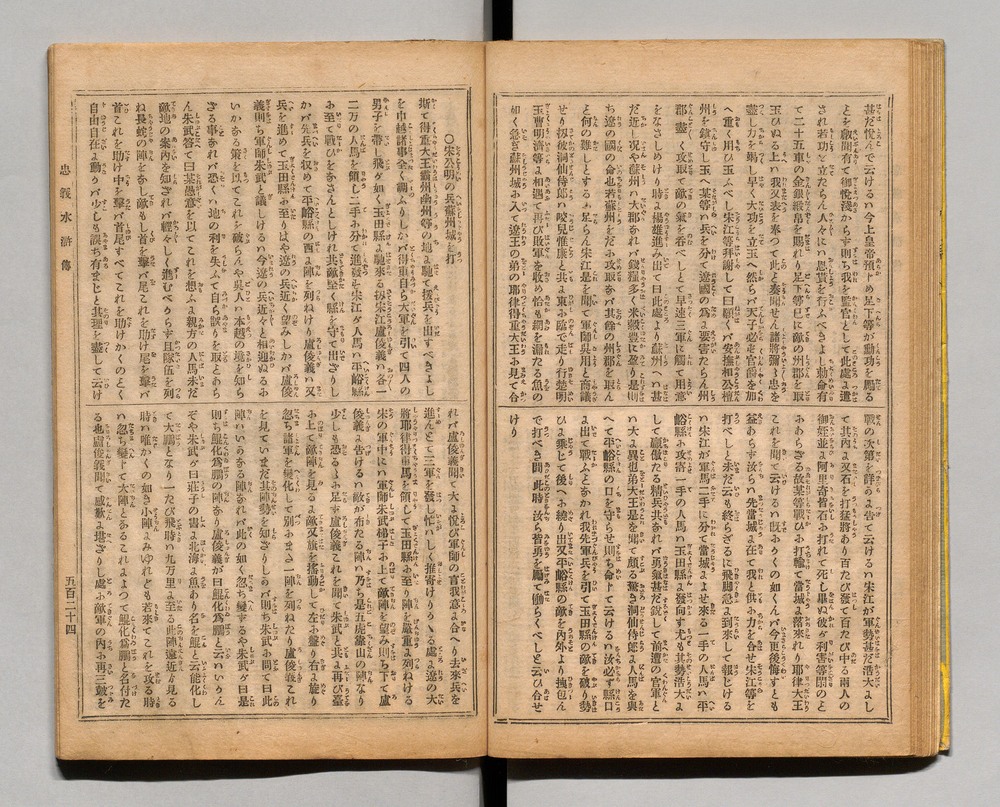 甚だ悦んで云けるハ今上皇帝預じめ足下等が勳功を賜る
とを叡聞有て御悦淺からず則ち我を監官として此處ょ遣
され若功を立たらん人々にハ恩賞を行ふべきよし勅命有
て二十五車の金銀緞帛を賜れり足下等已に敵の州郡を取
玉ひぬる上ハ我又表を奉つて此よしを奏聞せん諸將彌々忠を
盡し力を竭し早く大功を立玉へ然らバ天子必ず官爵を加
へ重く用ひ玉ふべし宋江等拜謝して曰願くバ安撫相公檀
州を鎭守し玉へ某等ハ兵を分て遼國の爲ょ要害たらん州
郡を盡く攻取て敵の氣を呑べしとて早速三軍に觸て用意
をなさしめけり時ょ楊雄進み出て曰此處より蘇州へハ甚
だ近し況や蘇州ハ大郡なれバ錢糧多く米穀豊に盈り是則
ち遼の國の命也若蘇州をだょ攻取なバ其餘の州郡を取ん
と何の難しとするょ足らん宋江是を聞て軍師呉用と商議
せり扨彼洞仙侍郎ハ咬兒惟康と共ょ東ょ臨で走行き楚明
玉曹明濟等ょ相遇て再び敗軍を收め恰も網を漏たる魚の
如く急ぎ蘇州城ょ入て遼王の弟の耶律得重大王ょ見て合
戰の次第を詳ょ告て云けるハ宋江が軍勢甚だ浩大ょし
て其内ょ又石を打猛將あり百たび發て百たび中る兩人の
御姪並ょ阿里奇皆石ょ打れて死し畢ぬ彼が利害等閑のと
ょあらざる故某等戰ひょ打輸て當城ょ落來れり耶律大王
これを聞て云けるハ既ょかくの如くんバ今更後悔すとも
益あらず汝らハ先當城ょ在て我と供ょ力を合せ宋江等を
打べしと未だ云も終らざるに飛脚急ょ到來して報じける
ハ宋江が軍馬二手に分て當城ょよせ來る一手の人馬ハ平
峪縣ょ攻寄せ一手の人馬ハ玉田縣ょ發向す尤も其勢浩大ょ
して驀傲たる精兵共なれバ勇氣甚だ銳して前遭の官軍と
ハ大ょ異也弟大王是を聞て頗る驚き洞仙侍郎ょ人馬を與
へて平峪縣の口を守らせ則ち命じて云けるハ汝必ず縣口
ょ出て戰ふとなかれ我先軍兵を引て玉田縣の敵を破り勢
ひょ乘じて後へを繞り又平峪縣の敵を内外より挾包ん
で打べき間此時ょ汝ら皆勇を勵で働らくべしと云ひ合せ
けり
○宋公明の兵蘇州城を打
斯て得重大王霸州幽州等の地ょ馳て援兵を出すべきよし
を申越諸事全く調ふりしかバ得重自ら大軍を引て四人の
男子を帶し飛が如く玉田縣ょ馳來る扨宋江盧俊義ハ各一
二万の人馬を領し二手ょ分て進發す宋江が人馬ハ平峪縣
ょ至て戰ひをなさんとしけれ共敵堅く縣を守て出ざりし
かバ先兵を收めて平峪縣の西ょ陣を列ねけり盧俊義ハ又
兵を進めて玉田縣ょ至りはや遼の兵近く望みしかバ盧俊
義則ち軍師朱武と議しけるハ今遼の兵近々と相迎ぬるょ
いかなる策を以てこれを破らんや呉人ハ本越の境を知ら
ざる事なれバ恐くハ地の利を失ふて自ら誤りを取とあら
ん朱武答て曰某愚意を以てこれを想ふょ親方の人馬未だ
敵地の案内を知ざれバ輕々しく進むべからず且隊伍を列
ね長蛇の陣をなし敵もし首を擊バ尾これを助け尾を擊バ
首これを助け中を擊バ首尾すべてこれを助けかくのとく
自由自在ょ働かバ少しも誤ち有まじと其理を盡して云け
れバ盧俊義聞て大ょ悅び軍師の言我意ょ合へり去來兵を
進んとて三軍を發し忙ハしく推寄けりかゝる處ょ遼の大
將耶律得重馬を領して玉田縣ょ至り陣を嚴重ょ列ねける
宋の軍中にハ軍師朱武梯子ょ上て敵陣を望み則ち下て盧
俊義ょ告けるハ敵が布たる陣ハ乃ち是五虎靠山の陣なり
少しも恐るゝょ足ず盧俊義これを聞て朱武と共ょ再び臺
ょ上て敵陣を見るょ敵又旗を搖動して左ょ盤り右ょ旋り
忽ち諸軍を變化して別ょまさょ一陣を列ねたり盧俊義これ
を見ていまだ其陣勢を知ざりしかバ則ち朱武ょ問て曰此
陣ハいかなる陣なれバ此の如く忽ち變ずるや朱武が曰是
則ち鯤化爲鵬の陣なり盧俊義が曰鯤化爲鵬と云ハいかん
ぞや朱武が曰莊子の書ょ北海ょ魚あり名を鯤と云能化し
て大鵬となり一たび飛時ハ九万里ょ至る此陣遠近ょ見る
時ハ唯かくの如き小陣ょみゆれども若來てこれを攻る時
ハ忽ち變じて大陣となるこれょよつて鯤化爲鵬と名付た
る也盧俊義聞て感歎ょ堪ざりし處ょ敵軍の内ょ再三鼓を
忠義水滸傳
五百二十四